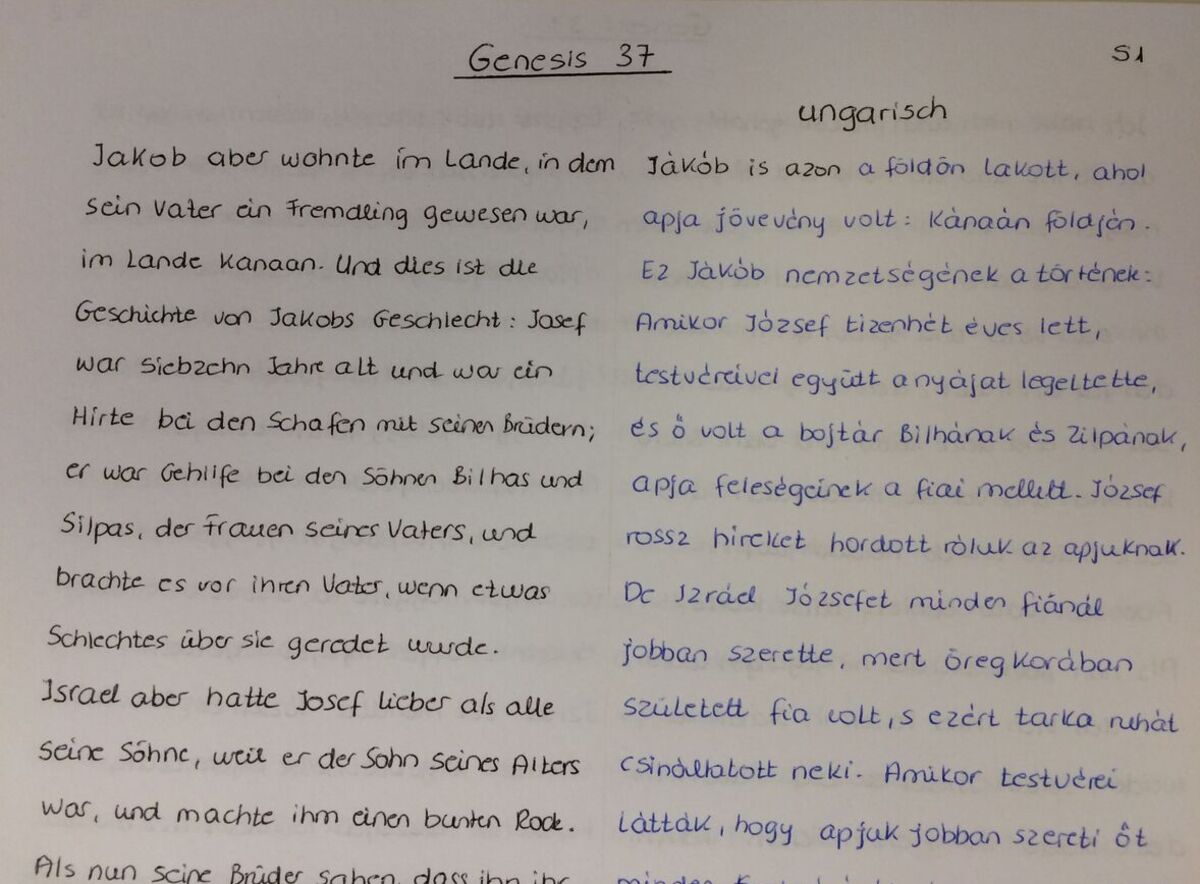 Genesis 37
S1
ungarisch
Jakob aber wohnte im Lande, in dem
sein Vater ein Fremdling gewesen war,
im Lande Kanaan. Und dies ist die
Geschichte von Jakobs Geschlecht: Josef
war siebzehn Jahre alt und war ein
Hirte bei den Schafen mit seinen Brüdern;
er war Gehlife bei den Söhnen Bilhas und
Silpas, der Frauen seines Vaters, und
brachte es vor ihren Vater, wenn etwas
Schlechtes über sie geredet wurde.
Israel aber hatte Josef lieber als alle
seine Söhne, weil er der Sohn seines Alters
war, und machte ihm einen bunten Rock.
Als nun seine Brüder sahen, dass ihn ihr
Jákób is azon a földön lakott, ahol
apja jövevény volt: Kánaán földjén.
Ez Jákób nemzetségének a történek:
Amikor József tizenhét éves lett,
testvéreivei együtt a nyájat legeltette,
és ő volt a bojtár Bilhának és Zilpának,
apja feleségeinek a fiai mellett. József
rossz hireket hordott róluk az apjuknak.
De Izráel Józsefet minden fiánál
jobban szerette, mert öreg korában
született fia volt, s ezért tarka ruhát
csináltatott neki. Amikor testvérei
látták, hogy apjuk jobban szereti őt